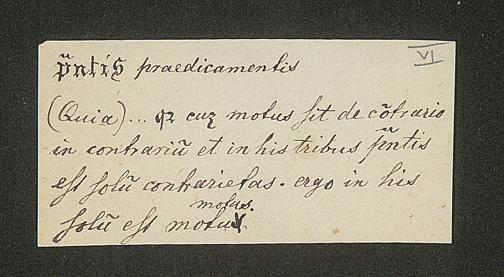 VI
p̃ntis praedicamentis
(Quia)... qz cuz motus sit de cõtrario
in contrariũ et in his tribus p̃ntis
est solũ contrarietas. ergo in his
motus.
solũ est